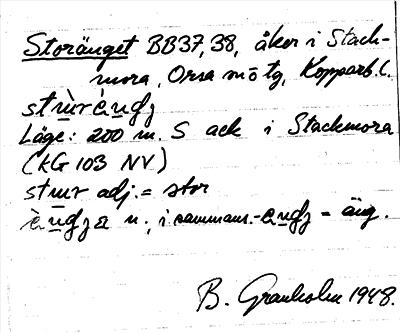 Storänget BB37, 38, åker i Stack-
mora, Orsa sn o tg, Kopparb. l.
Läge: 200 m. S ack i Stackmora
(KG 103 NV)
adj. = stor
n., i sammans. - = äng.
B. Granholm 1948.